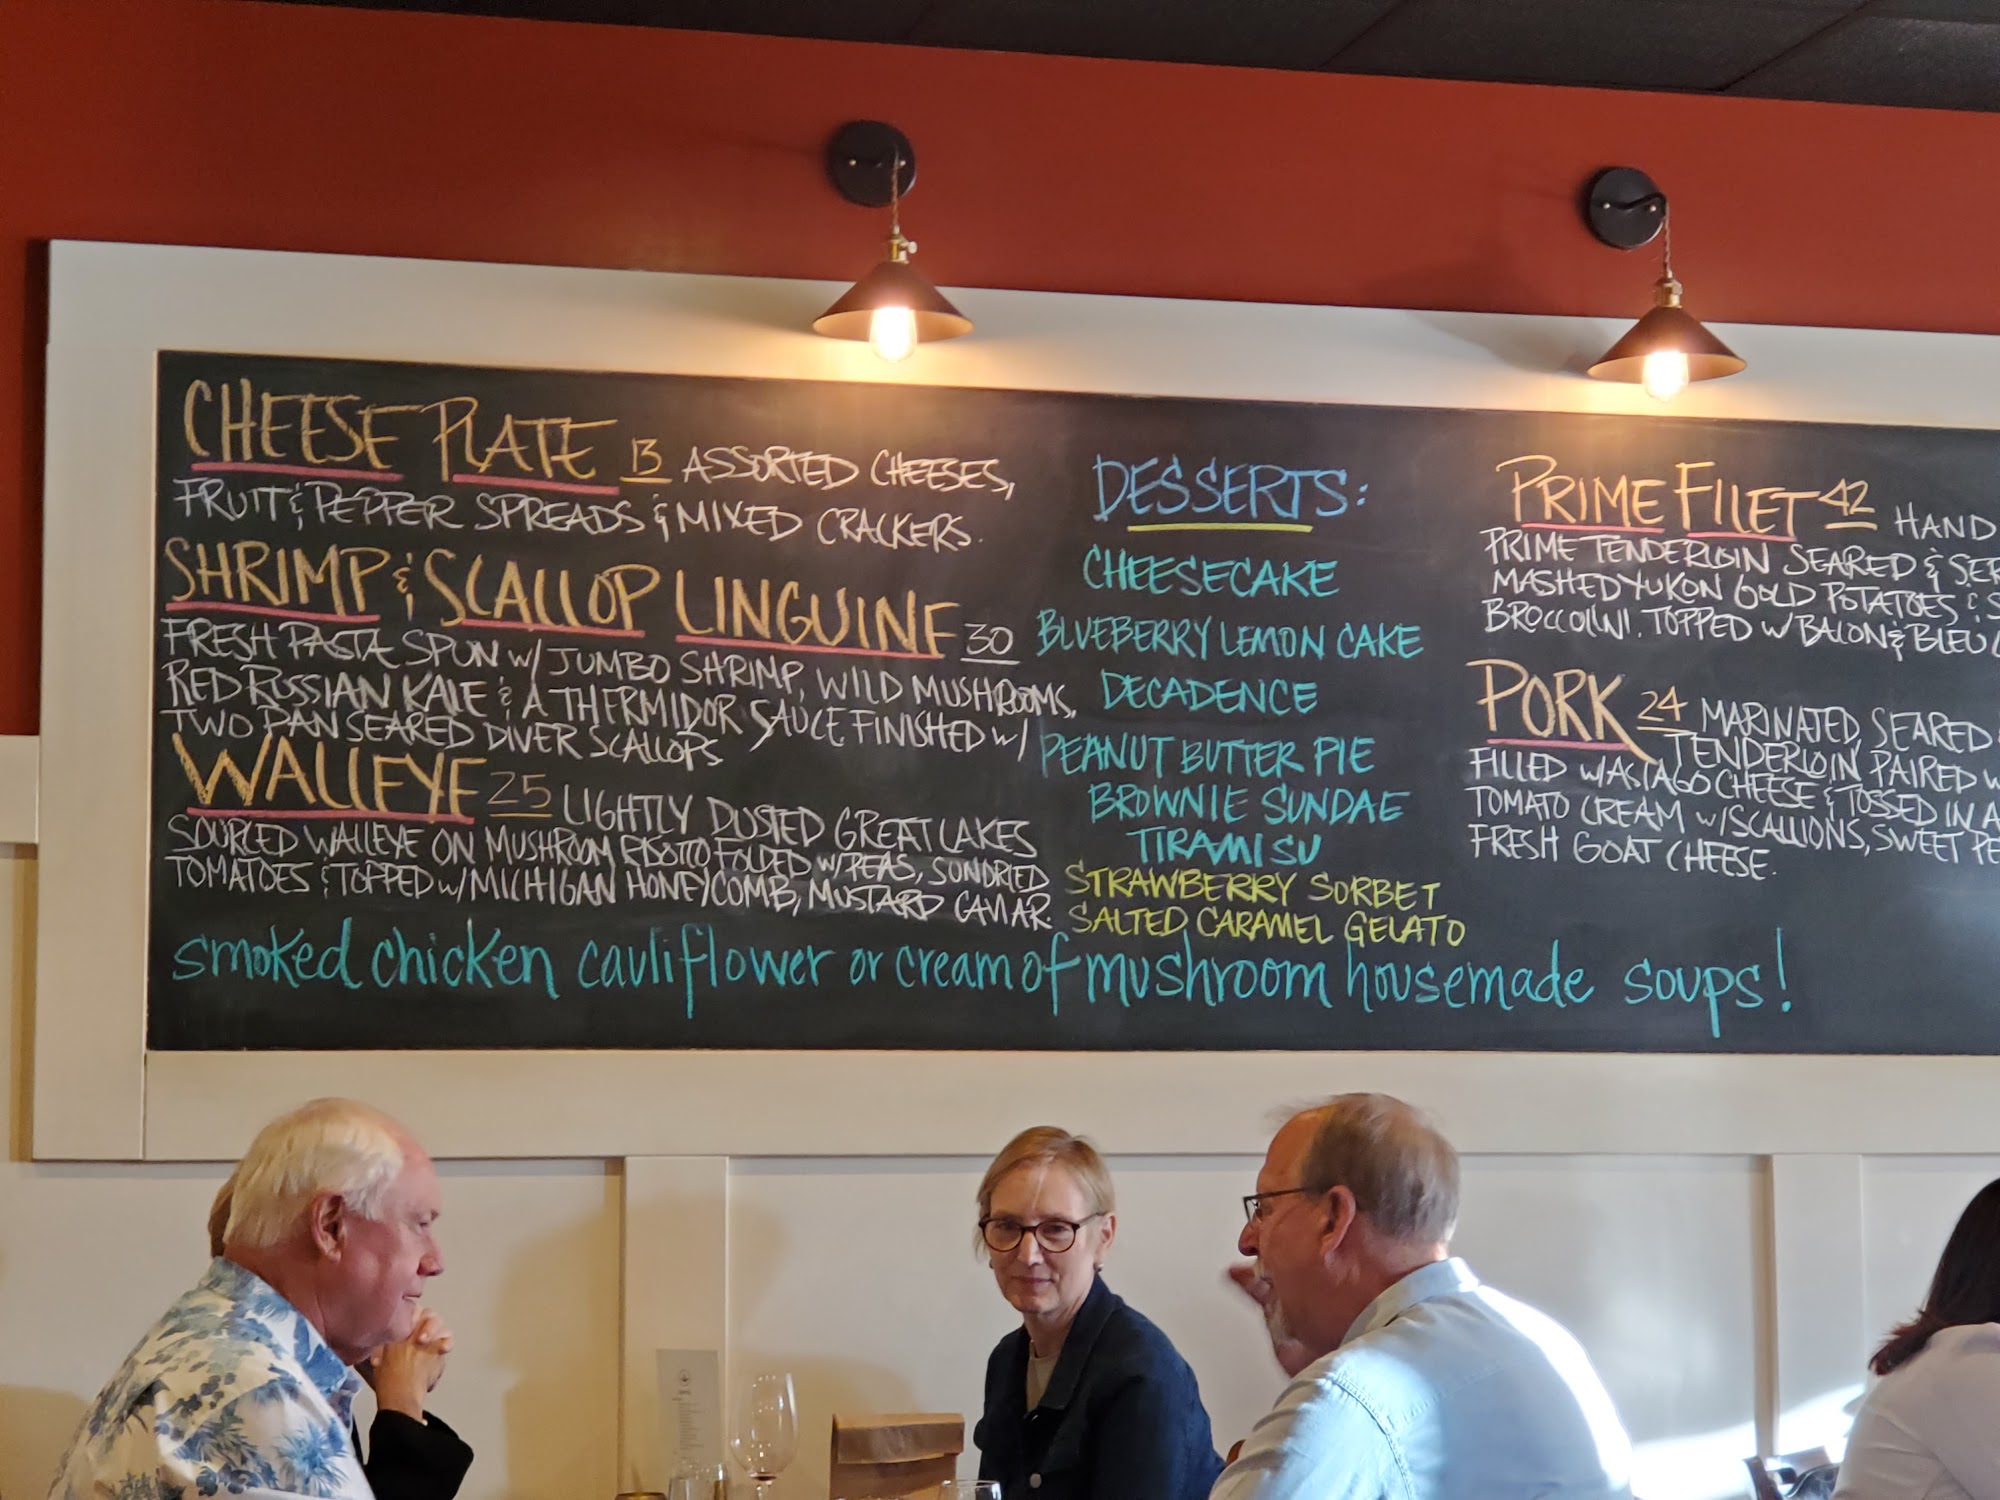 CHEESE PLATE 13 ASSORTED CHEESES,
FRUIT & PEPPER SPREADS & MIXED CRACKERS.
SHRIMP & SCALLOP LINGUINE 30
FRESH PASTA SPUN W/ JUMBO SHRIMP, WILD MUSHROOMS,
RED RUSSIAN KALE & A THERMIDOR SAUCE FINISHED W/
TWO PAN SEARED DIVER SCALLOPS
WALLEYE 25 LIGHTLY DUSTED GREAT LAKES
SOURCED WALLEYE ON MUSHROOM RISOTTO FOLDED W/ PEAS, SUNDRIED
TOMATOES & TOPPED W/ MICHIGAN HONEYCOMB, MUSTARD CAVIAR.
DESSERTS:
CHEESECAKE
BLUEBERRY LEMON CAKE
DECADENCE
PEANUT BUTTER PIE
BROWNIE SUNDAE
TIRAMISU
STRAWBERRY SORBET
SALTED CARAMEL GELATO
PRIME FILET 42 HAND
PRIME TENDERLOIN SEARED & SER
MASHED YUKON GOLD POTATOES & S
BROCCOLINI. TOPPED W/ BACON & BLEU
PORK 24 MARINATED SEARED
TENDERLOIN PAIRED W
FILLED W/ ASIAGO CHEESE & TOSSED IN A
TOMATO CREAM W/ SCALLIONS, SWEET PE
FRESH GOAT CHEESE.
smoked chicken cauliflower or cream of mushroom housemade soups!